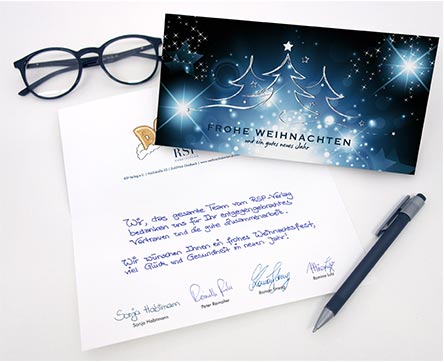 FROHE WEIHNACHTEN
und ein gutes neues Jahr
RSP
Wir, das gesamte Team vom RSP-Verlag
bedanken uns für Ihr entgegengebrachtes
Vertrauen und die gute Zusammenarbeit.
Wir wünschen Ihnen ein frohes Weihnachtsfest,
viel Glück und Gesundheit im neuen Jahr!
Sonja Habtmann
Sonja Habtmann
Peter Rampher